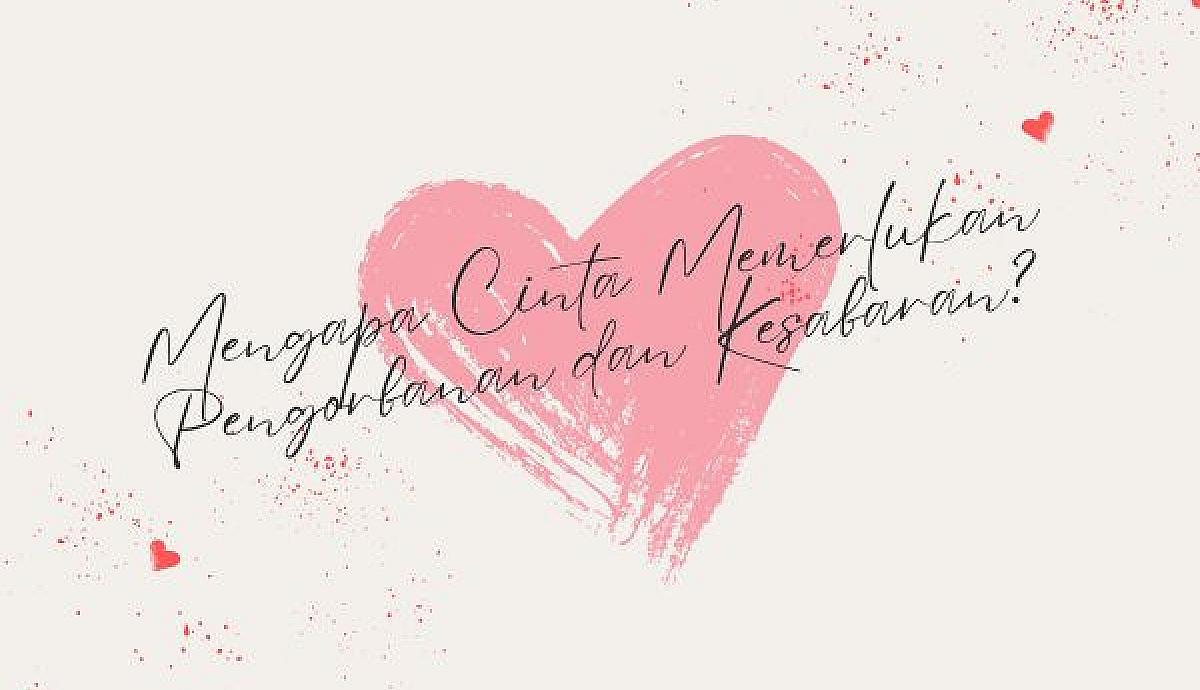 Mengapa Cinta Memerlukan
Pengorbanan dan Kesabaran?